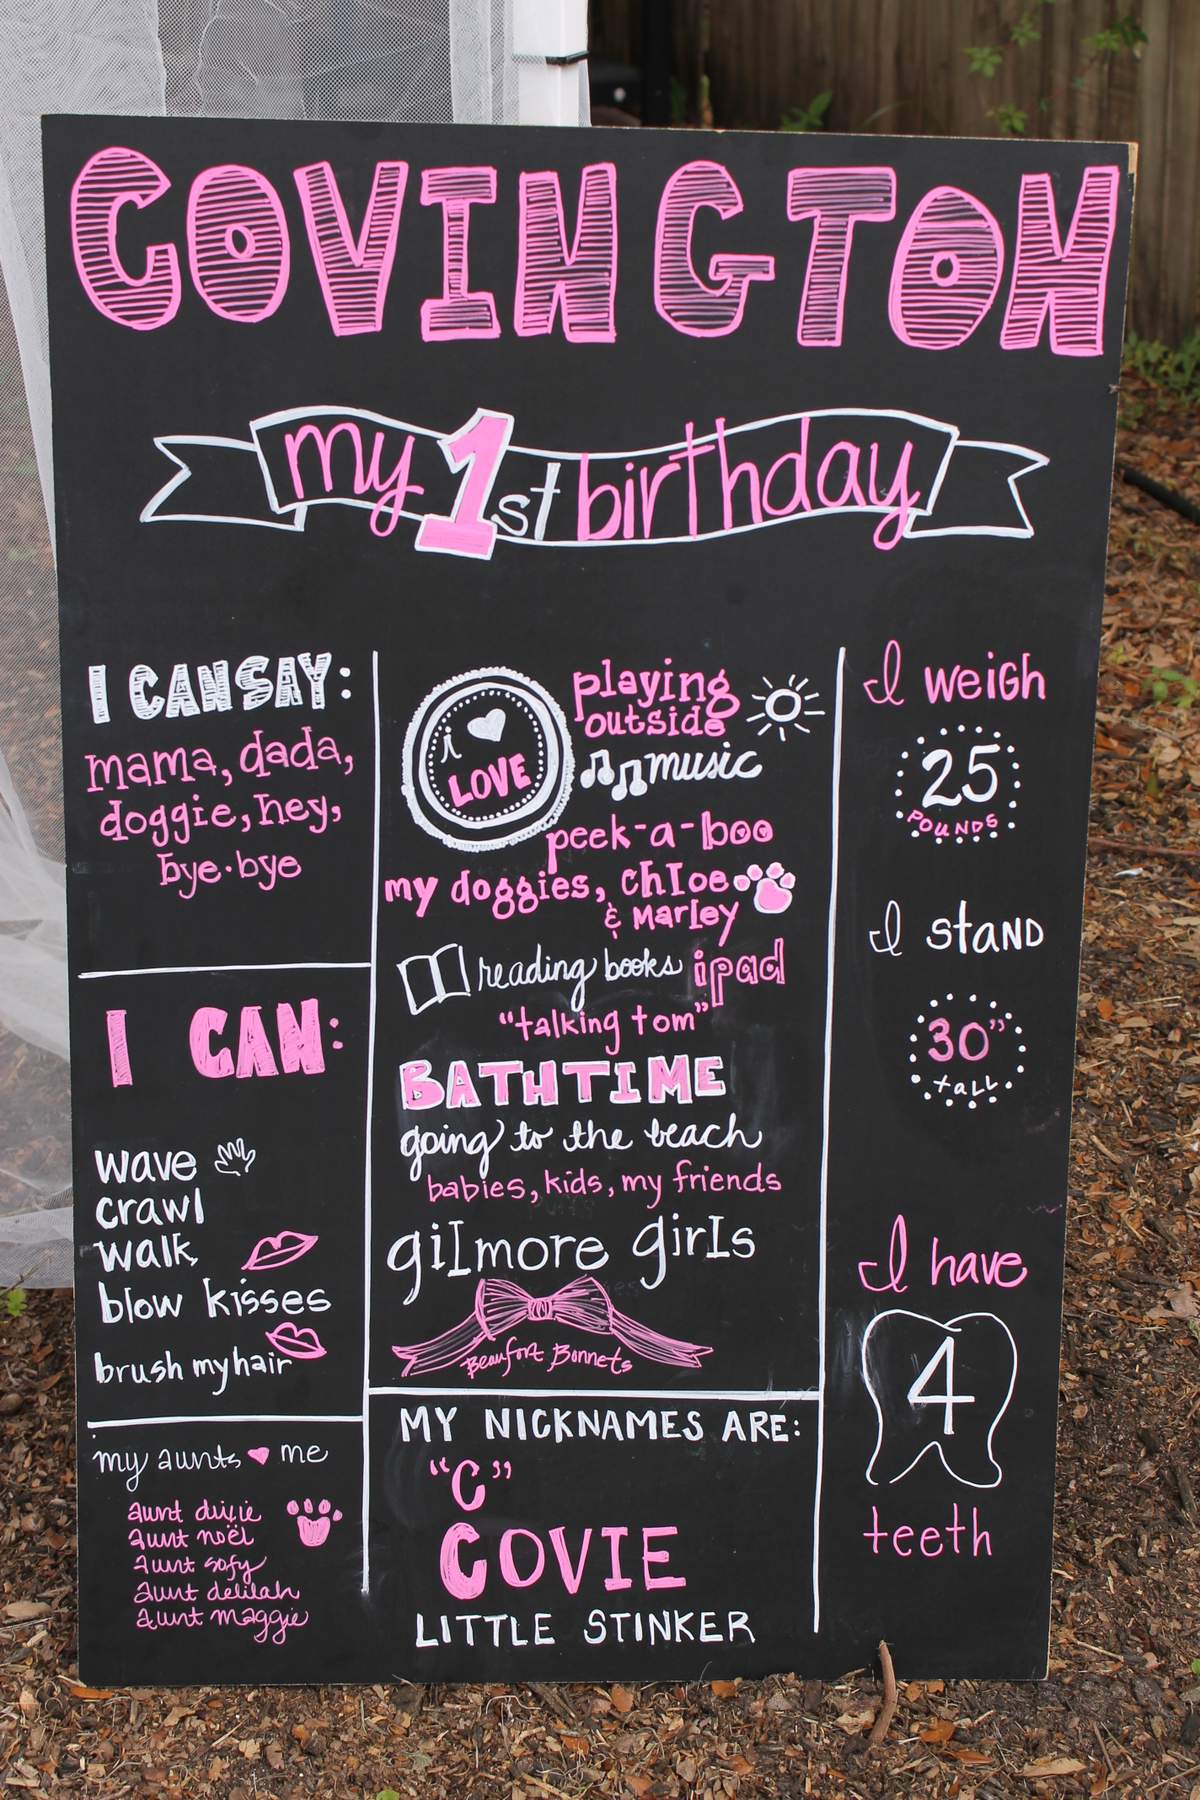 COVINGTON
my 1st birthday
I CAN SAY:
mama, dada,
doggie, hey,
bye-bye
I CAN:
wave
crawl
walk
blow kisses
brush my hair
my aunts ♥ me
aunt dixie
aunt noël
aunt sofy
aunt delilah
aunt maggie
i ♥
LOVE
playing
outside
music
peek-a-boo
my doggies, Chloe
& Marley
reading books ipad
"talking tom"
BATHTIME
going to the beach
babies, kids, my friends
gilmore girls
Beaufort Bonnets
MY NICKNAMES ARE:
"C"
COVIE
LITTLE STINKER
I weigh
25
POUNDS
I stand
30"
tall
I have
4
teeth